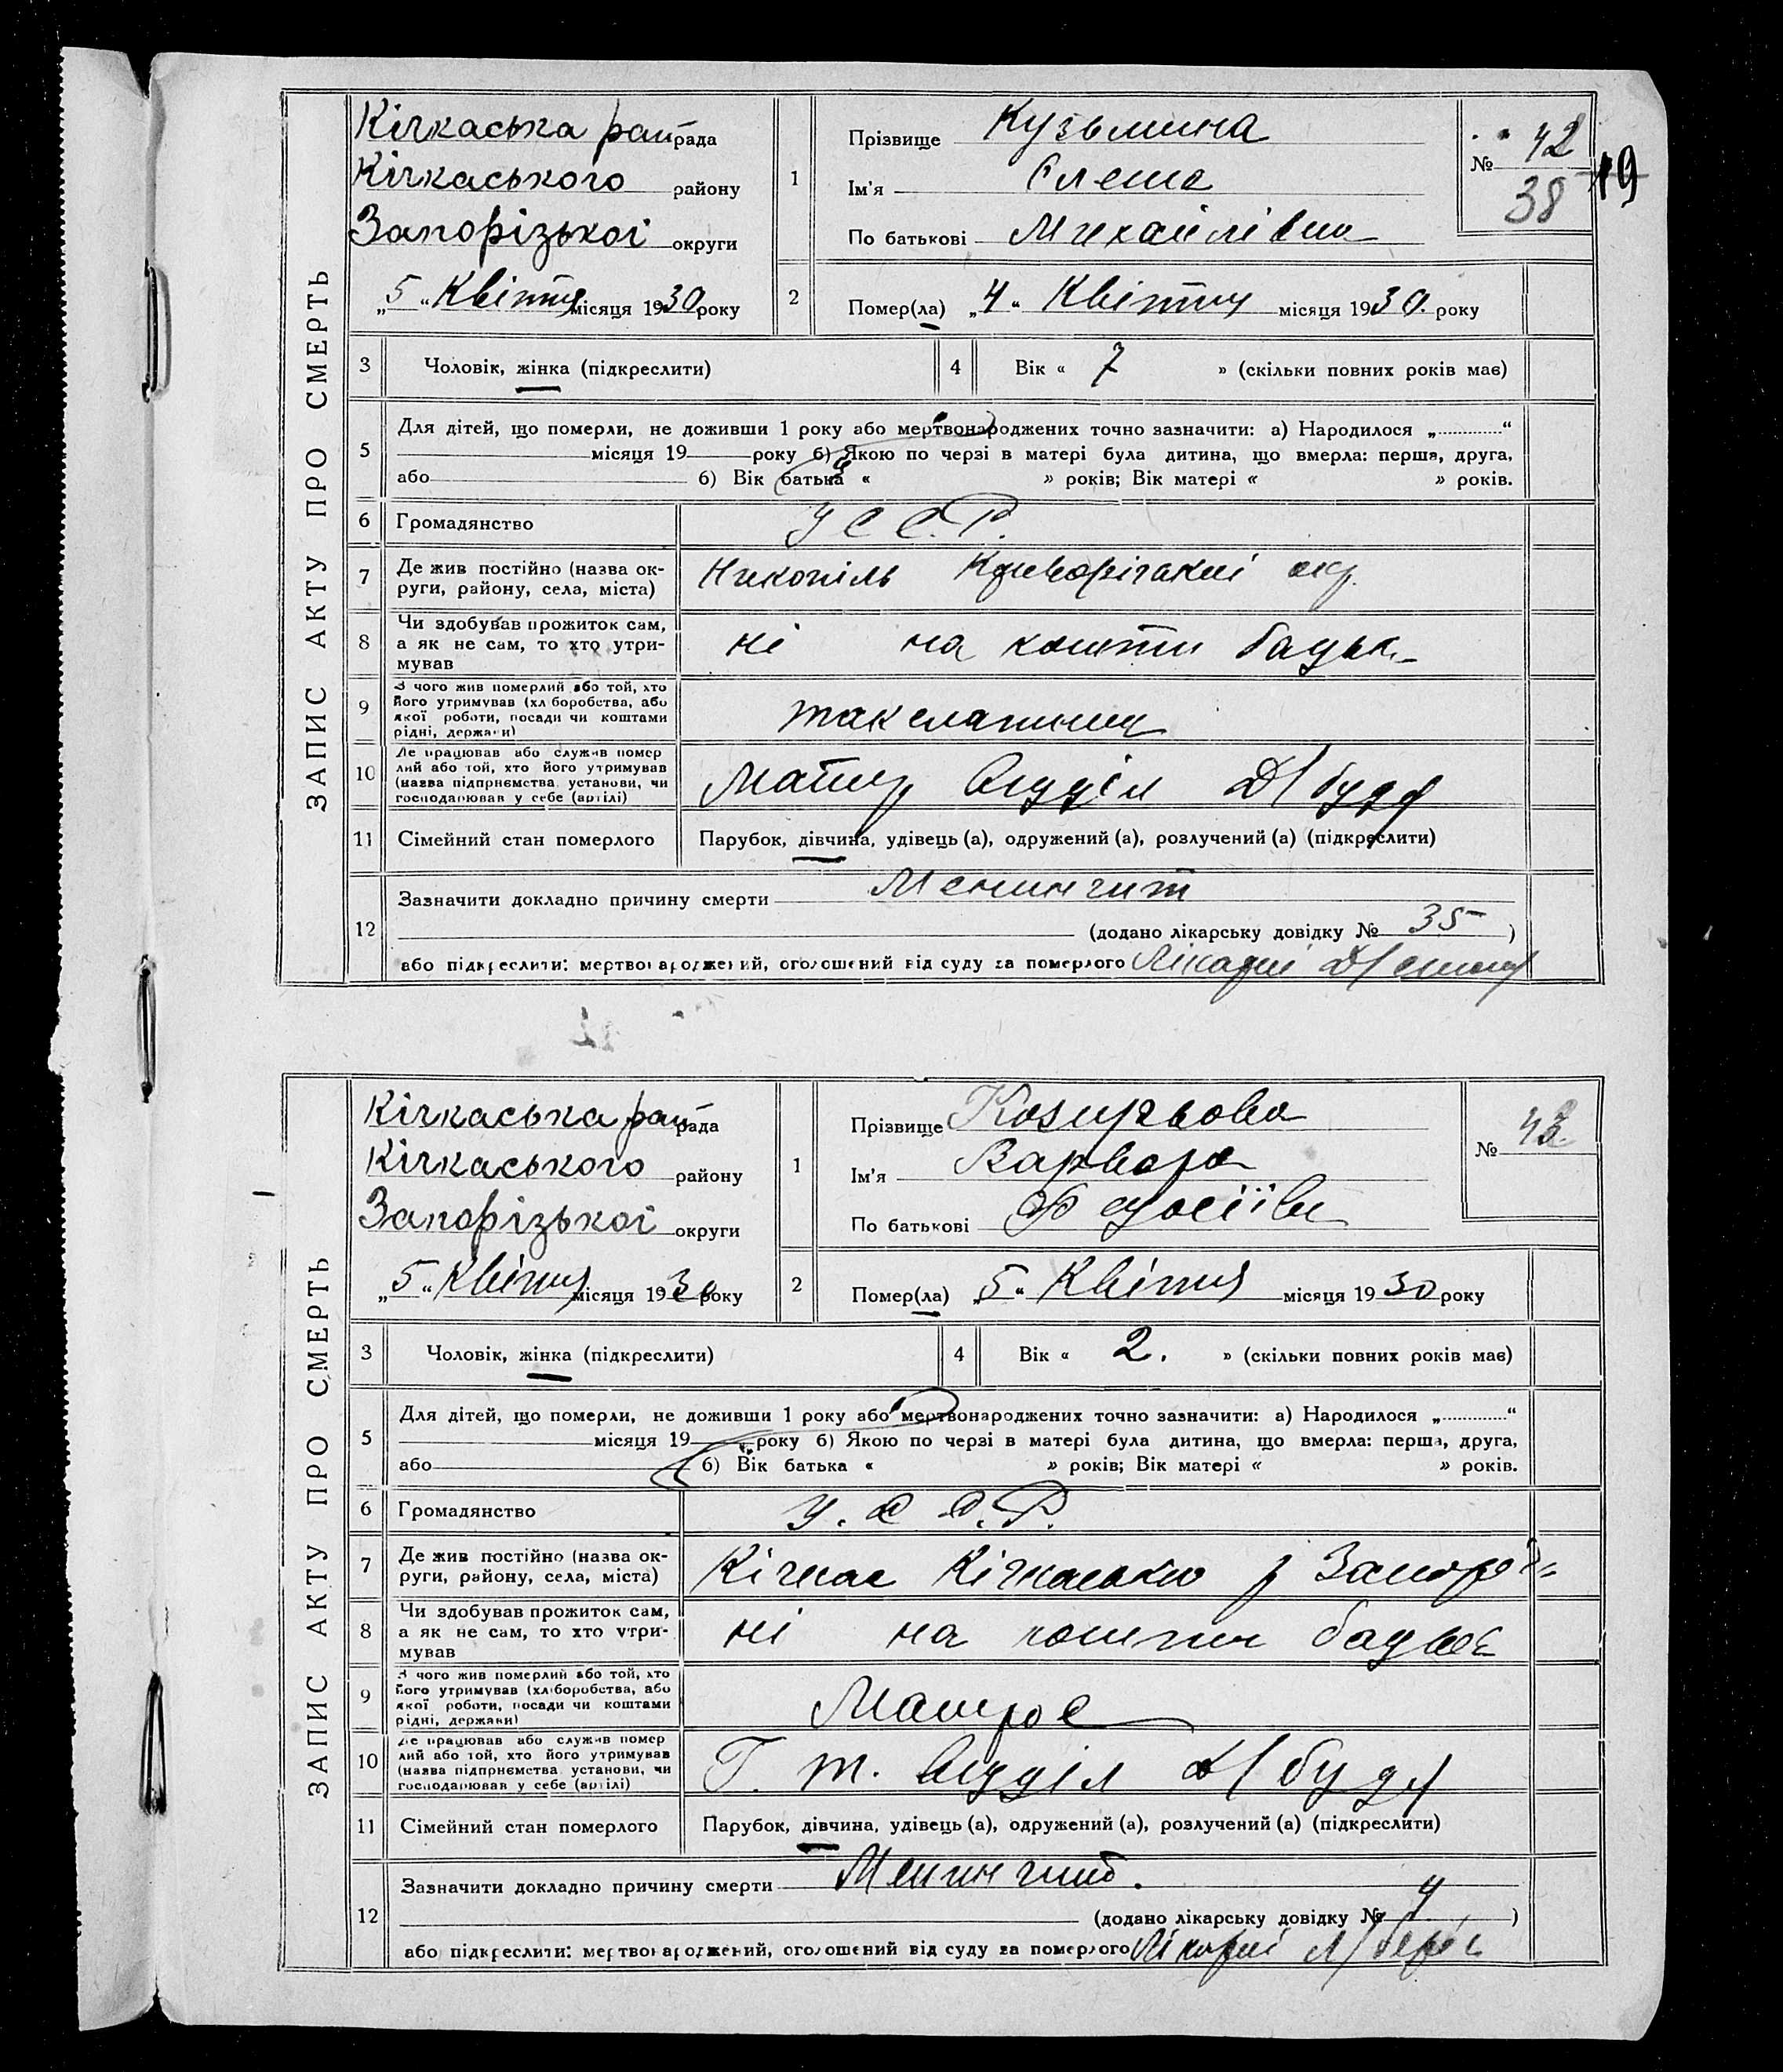 ЗАПИС АКТУ ПРО СМЕРТЬ
Кічкаська рай рада
Кічкаського району
Запорізької округи
„5“ Квітня місяця 1930 року
1
Прізвище Кузьмина
Ім'я Єлена
По батькові Михайлівна
№ 42
38
19
2
Помер(ла) „4“ Квітня місяця 1930. року
3
Чоловік, жінка (підкреслити)
4
Вік « 7 » (скільки повних років має)
5
Для дітей, що померли, не доживши 1 року або мертвонароджених точно зазначити: а) Народилося „ “
місяця 19 року б) Якою по черзі в матері була дитина, що вмерла: перша, друга,
або б) Вік батька « » років; Вік матері « » років.
6
Громадянство
У С С. Р.
7
Де жив постійно (назва ок-
руги, району, села, міста)
Никопіль Криворізької окр.
8
Чи здобував прожиток сам,
а як не сам, то хто утри-
мував
ні на кошти батьк
9
З чого жив померлий або той, хто
його утримував (хліборобства, або
якої роботи, посади чи коштами
рідні, держави)
10
Де працював або служив помер
лий або той, хто його утримував
(назва підприємства, установи, чи
господарював у себе (артілі)
відділ Д/буду
11
Сімейний стан померлого
Парубок, дівчина, удівець (а), одружений (а), розлучений (а) (підкреслити)
12
Зазначити докладно причину смерти Менингит
(додано лікарську довідку № 35 )
або підкреслити: мертвонароджений, оголошений від суду за померлого Лікарні
ЗАПИС АКТУ ПРО СМЕРТЬ
Кічкаська рай рада
Кічкаського району
Запорізької округи
„5“ Квітня місяця 1930 року
1
Прізвище Козирьова
Ім'я Варвара
По батькові
№ 43
2
Помер(ла) „5“ Квітня місяця 1930 року
3
Чоловік, жінка (підкреслити)
4
Вік « 2. » (скільки повних років має)
5
Для дітей, що померли, не доживши 1 року або мертвонароджених точно зазначити: а) Народилося „ “
місяця 19 року б) Якою по черзі в матері була дитина, що вмерла: перша, друга,
або б) Вік батька « » років; Вік матері « » років.
6
Громадянство
У. С С. Р.
7
Де жив постійно (назва ок-
руги, району, села, міста)
Кічкас Кічкаського р Запоріз
8
Чи здобував прожиток сам,
а як не сам, то хто утри-
мував
ні на кошти батьків
9
З чого жив померлий або той, хто
його утримував (хліборобства, або
якої роботи, посади чи коштами
рідні, держави)
Матрос
10
Де працював або служив помер
лий або той, хто його утримував
(назва підприємства, установи, чи
господарював у себе (артілі)
Г. т. відділ Д/буду
11
Сімейний стан померлого
Парубок, дівчина, удівець (а), одружений (а), розлучений (а) (підкреслити)
12
Зазначити докладно причину смерти Менингит.
(додано лікарську довідку № 4 )
або підкреслити: мертвонароджений, оголошений від суду за померлого Лікарні